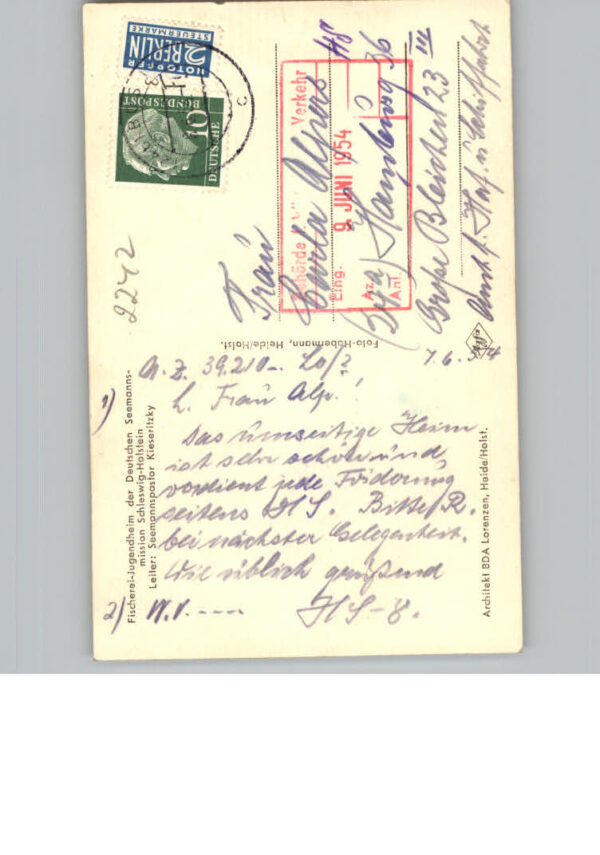 NOTOPFER
2 BERLIN
STEUERMARKE
10
DEUTSCHE
BUNDESPOST
2242
Frau
Carla Alpers
(24a) Hamburg 36
Große Bleichen 23 III
Amt f. Haf. u. Schiffahrt
Behörde f. Verkehr
Eing. 9. JUNI 1954
Az.
Anl.
H8
Foto-Habermann, Heide/Holst.
Agfa
Fischerei-Jugendheim der Deutschen Seemanns-
mission Schleswig-Holstein
Leiter: Seemannspastor Kieseritzky
Architekt BDA Lorenzen, Heide/Holst.
7.6.54
1) A.Z. 39.210-. Lo/2
L. Frau Alp.!
Das umseitige Heim
ist sehr schön und
verdient jede Förderung
seitens HS. Bitte/R.
bei nächster Gelegenheit.
Wie üblich grüßend
2) W.V. ---- HS-8.